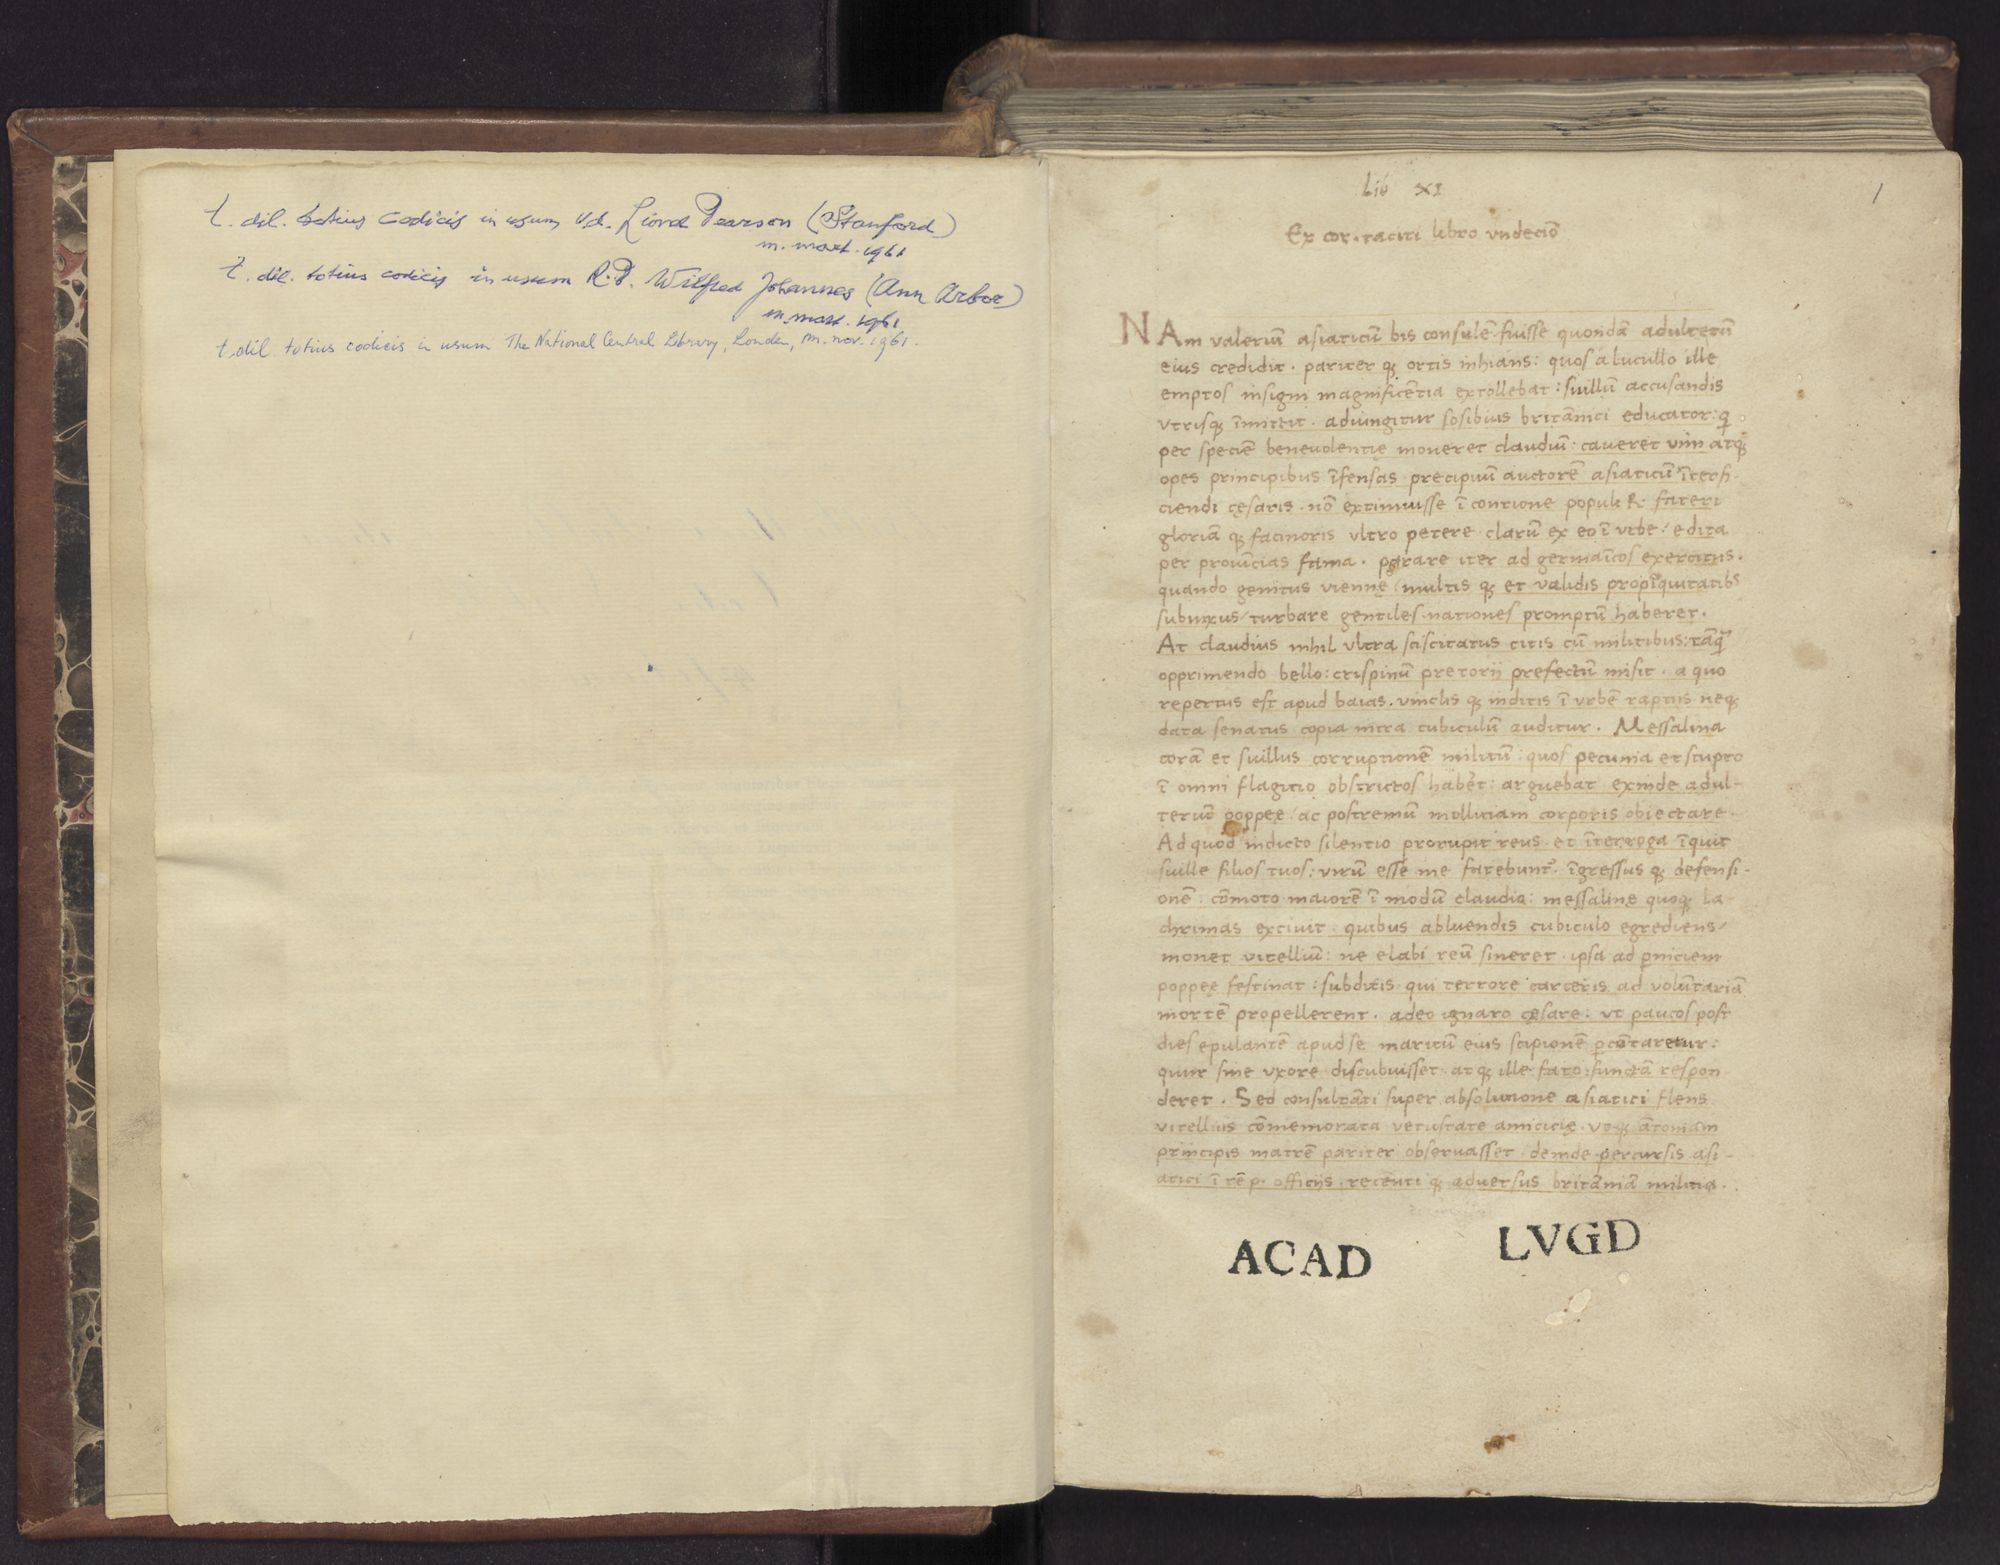 t. dil. totius codicis in usum v.d. Lionel Pearson (Stanford)
m. mart. 1961
t. dil. totius codicis in usum R.P. Wilfred Johannes (Ann Arbor)
m. mart. 1961
t. dil. totius codicis in usum The National Central Library, London, m. nov. 1961.
1
Lib XI
Ex cor. taciti libro vndecīo
NAm valeriū asiaticū bis consulē fuisse quondā adulterū
eius credidit. pariter qȝ ortis inhians: quos a lucullo ille
emptos insigni magnificētia extollebat: suillū accusandis
vtrisqȝ īmittit. adiungitur sosibius britānici educator: q
per speciē beneuolentię moueret claudiū: caueret vim atqȝ
opes principibus īfensas precipuū auctorē asiaticū īterfi-
ciendi cęsaris. nō extimuisse ī contione populi R. fateri
gloriā qȝ facinoris vltro petere. clarū ex eo ī vrbe/ edita
per prouīcias fama. parare iter ad germaīcos exercitus.
quando genitus viennę/ multis qȝ et validis propīquitatibȝ
subnixus/ turbare gentiles nationes promptū haberet.
At claudius nihil vltra sciscitatus citis cū militibus: tāqȝ
opprimendo bello: crispinū pretorii prefectū misit. a quo
repertus est apud baias. vinclis qȝ inditis ī vrbē raptus. neqȝ
data senatus copia intra cubiculū auditur. Messalina
corā et suillus corruptionē militū: quos pecunia et stupro
ī omni flagitio obstrictos haberet: arguebat exinde adul-
teriū poppeę/ ac postremū mollitiam corporis obiectare.
Ad quod indicto silentio prorupit reus. et īterroga īquit
suille filios tuos: virū esse me fatebunt. īgressus qȝ defensi-
onē. cōmoto maiorē ī modū claudio: messalinę quoqȝ la-
chrimas exciuit. quibus abluendis cubiculo egrediens/
monet vitelliū: ne elabi reū sineret. ipsa ad pniciem
poppeę festinat: subditis qui terrore carceris ad volūtariā
mortē propellerent. adeo ignaro cęsare: vt paucos post
dies epulantē apud se maritū eius scipionē pcōtaretur:
quur sine vxore discubuisset. atqȝ ille fato functā respon
deret. Sed consultāti super absolutione asiatici flens
vitellius cōmemorata vetustate amicicię. vtqȝ ātoniam
principis matrē pariter obseruasset. deinde percursis asi-
atici ī rēp. officiis. recenti qȝ aduersus britāniā militia.
ACAD LVGD